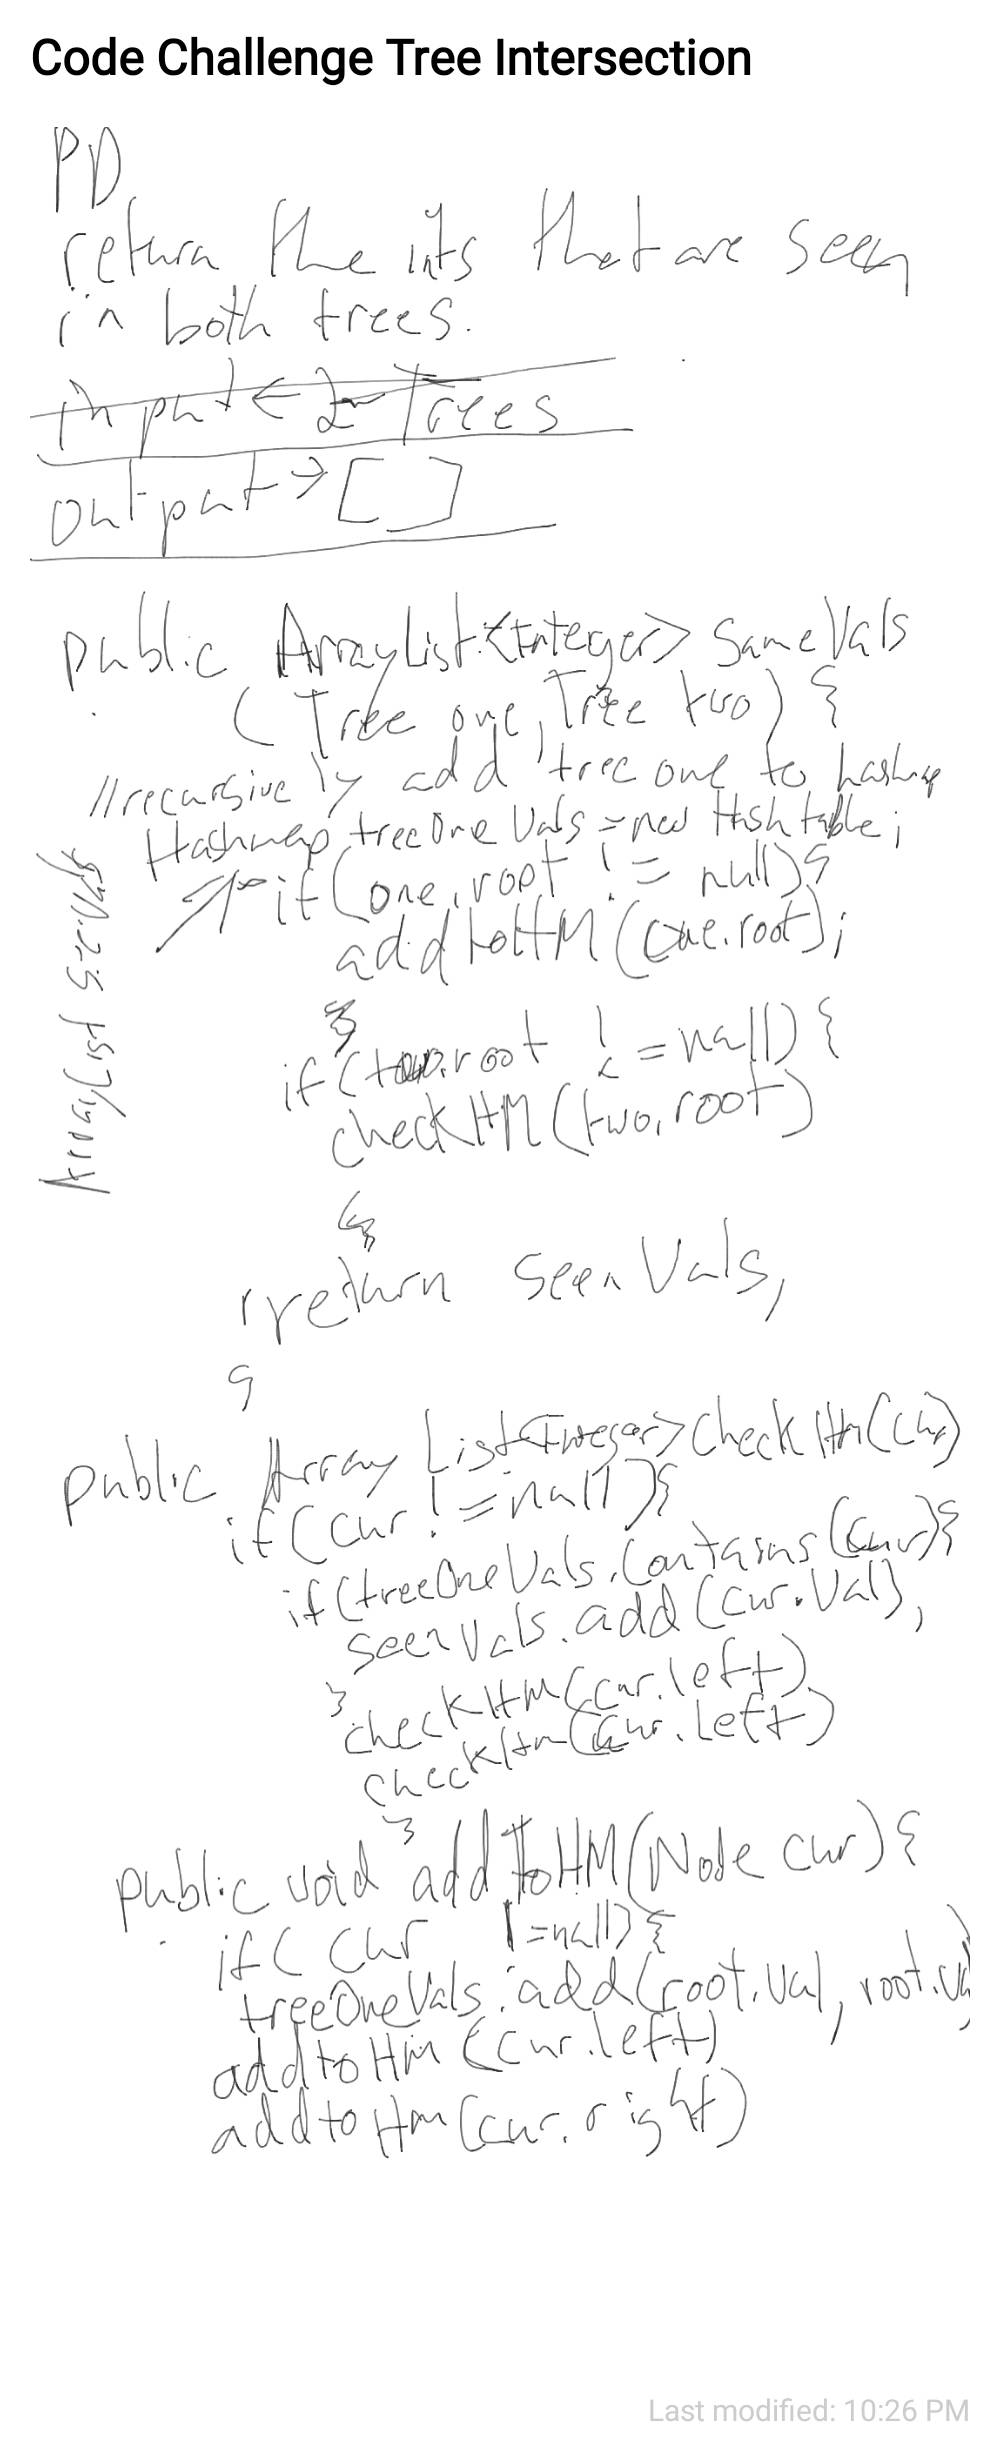 Code Challenge Tree Intersection
PD
return the ints that are seen
in both trees.
input ← 2 Trees
output → [ ]
public ArrayList<Integer> SameVals
( Tree one, Tree two) {
//recursively add tree one to hashmap
Hashmap treeOneVals = new Hashtable;
if (one.root != null){
addtoHM(one.root);
}
if (two.root != null) {
checkHM(two.root)
}
return seenVals;
}
ArrayList seenVals
public ArrayList<Integer> checkHm(cur)
if (cur != null){
if(treeOneVals.Contains(cur){
seenVals.add(cur.Val),
}
checkHM(cur.left)
checkHm(cur.left)
}
public void addToHM(Node cur) {
if( cur !=null){
treeOneVals.add(root.val, root.va
addtoHm(cur.left)
addtoHm(cur.right)
Last modified: 10:26 PM